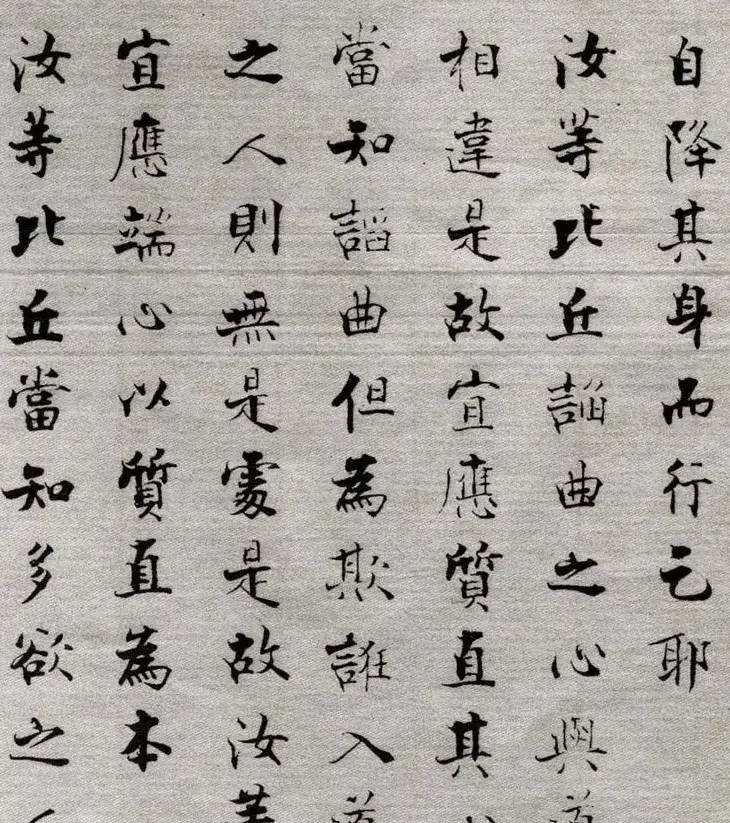 自降其身而行乞耶
汝等比丘諂曲之心與道
相違是故宜應質直其
當知諂曲但為欺誑入道
之人則無是處是故汝等
宜應端心以質直為本
汝等比丘當知多欲之